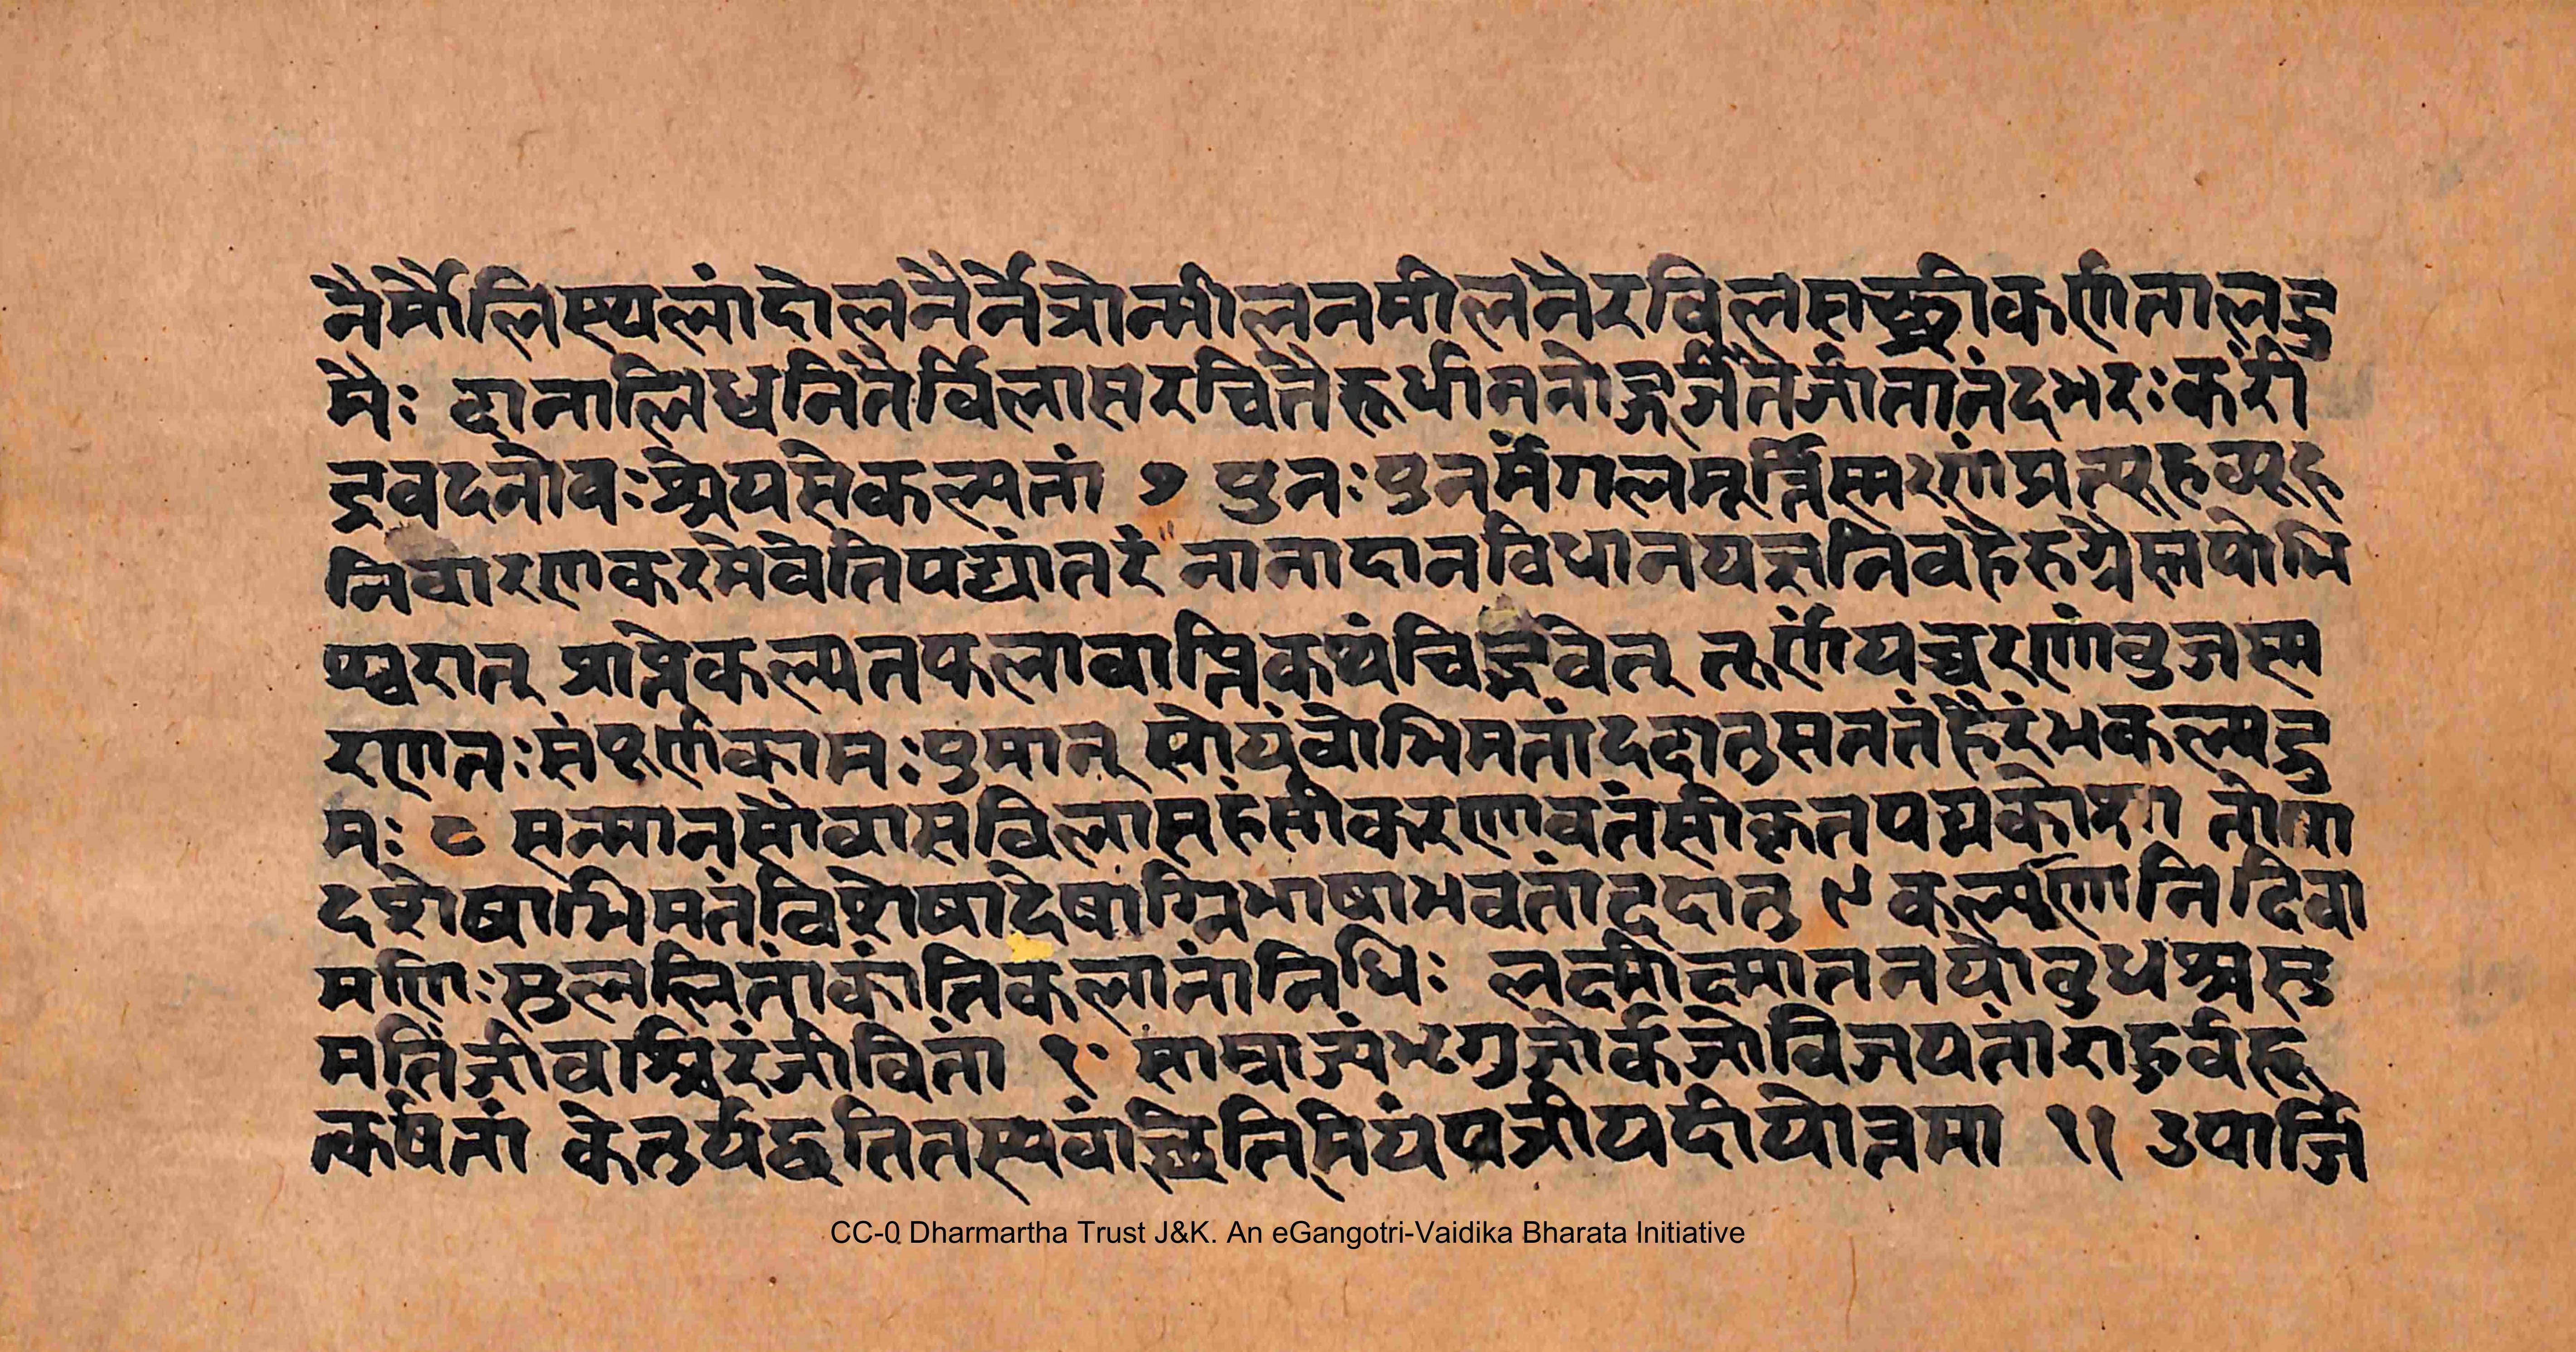 नैर्मौलिस्थलांदोलनैर्नेत्रोन्मीलनमीलनैरविलसच्छ्रीकर्णतालद्रु
मैः दानालिध्वनितैर्विलासरचितैरूर्धीमनोज्ञर्जितैर्जातानंदभरःकरीं
द्रवदनोवःश्रेयसेकल्पतां ७ पुनःपुनर्मंगलमूर्त्तिस्मरणंप्रत्यूहव्यूह
निवारणकरमेवेतिपद्यांतरं नानादानविधानयज्ञनिवहैरुग्रैस्तपोभि
श्चिरात् प्राप्नेकल्पितफलावाप्तिकथंचिद्भवेत् तूर्णंयच्चरणांबुजस्म
रणतःसंपूर्णकामःपुमान् सोयंवोभिमतांददातुसततंहेरंभकल्पद्रु
मः ८ सन्मानसोवासविलासहंसीकरणावतंसीकृतपद्मकोशा तोषा
दशेषाभिमतंविशेषादेषाग्निभाषाभवतांददातु ९ कल्पर्णानिदिवा
मणिःसुललितांकांतिकलानांनिधिः लक्ष्मींक्ष्मातनयोबुधश्चसु
मतिंजीवश्चिरंजीवितां १० साम्राज्यंभृगुजोर्कजोविजयतांराहुर्बहू
त्कर्षतां केतुर्यद्धतितस्यवांछितिमियंपत्रीयदीयोत्तमा ११ उपार्जि
CC-0 Dharmartha Trust J&K. An eGangotri-Vaidika Bharata Initiative